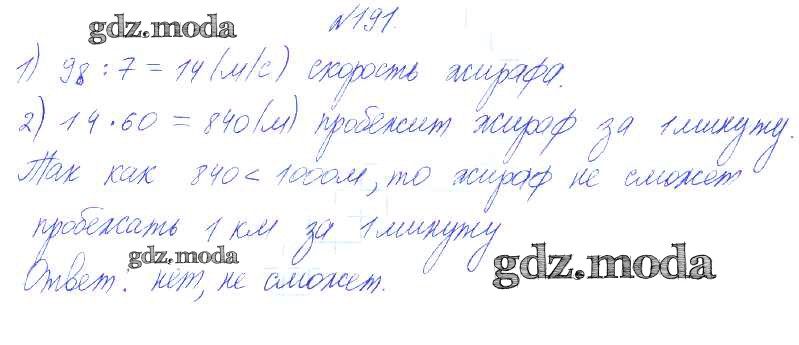 №191.
gdz.moda
1) 98 : 7 = 14 (м/с) скорость жирафа.
2) 14 • 60 = 840 (м) пробежит жираф за 1 минуту.
Так как 840 < 1000м, то жираф не сможет
пробежать 1 км за 1 минуту
gdz.moda
Ответ: нет, не сможет.
gdz.moda